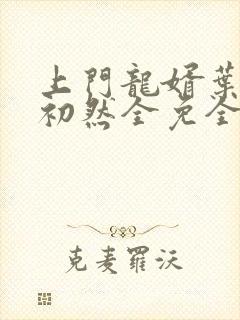 上門龍婿葉
初然全免全
克麦羅沃